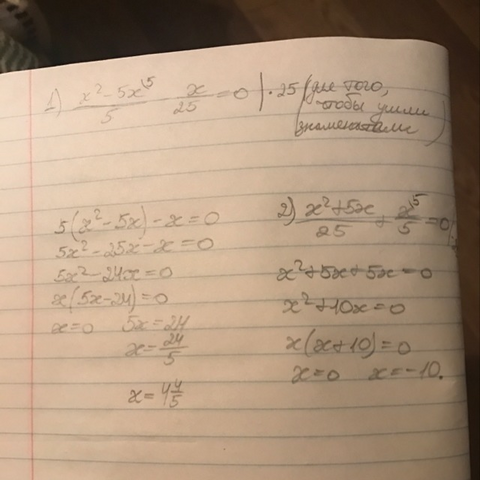 1) x²-5x⁵/5 x/25 = 0 | · 25 (для того,
чтобы ушли
знаменатели)
5(x²-5x)-x=0
5x²-25x-x=0
5x²-24x=0
x(5x-24)=0
x=0 5x=24
x=24/5
x=4 4/5
2) x²+5x/25 + x⁵/5 = 0
x²+5x+5x=0
x²+10x=0
x(x+10)=0
x=0 x=-10.